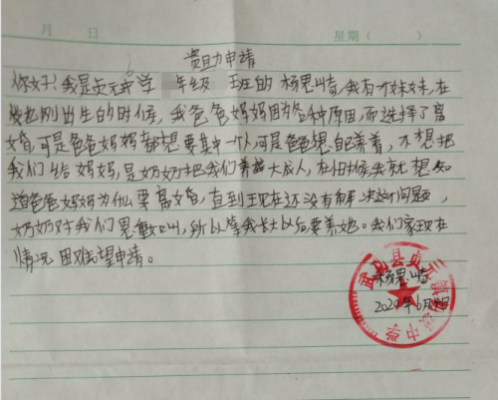 月 日 星期（ ）
资助申请
你好！我是贞元中学 年级 班的杨思崎，我有个妹妹，在
她刚出生的时候，我爸爸妈妈因为各种原因，而选择了离
婚，可是爸爸妈妈都想要其中一个人，可是爸爸想自己养着，不想把
我们给妈妈，是奶奶把我们养 大成人，在 时候我就想知
道爸爸妈妈为什么要离婚，直到现在还没有解决这个问题，
奶奶对我们 ，所以等我长大以后要养她。我们家现在
情况困难望申请。
杨思崎
202 年6月 日